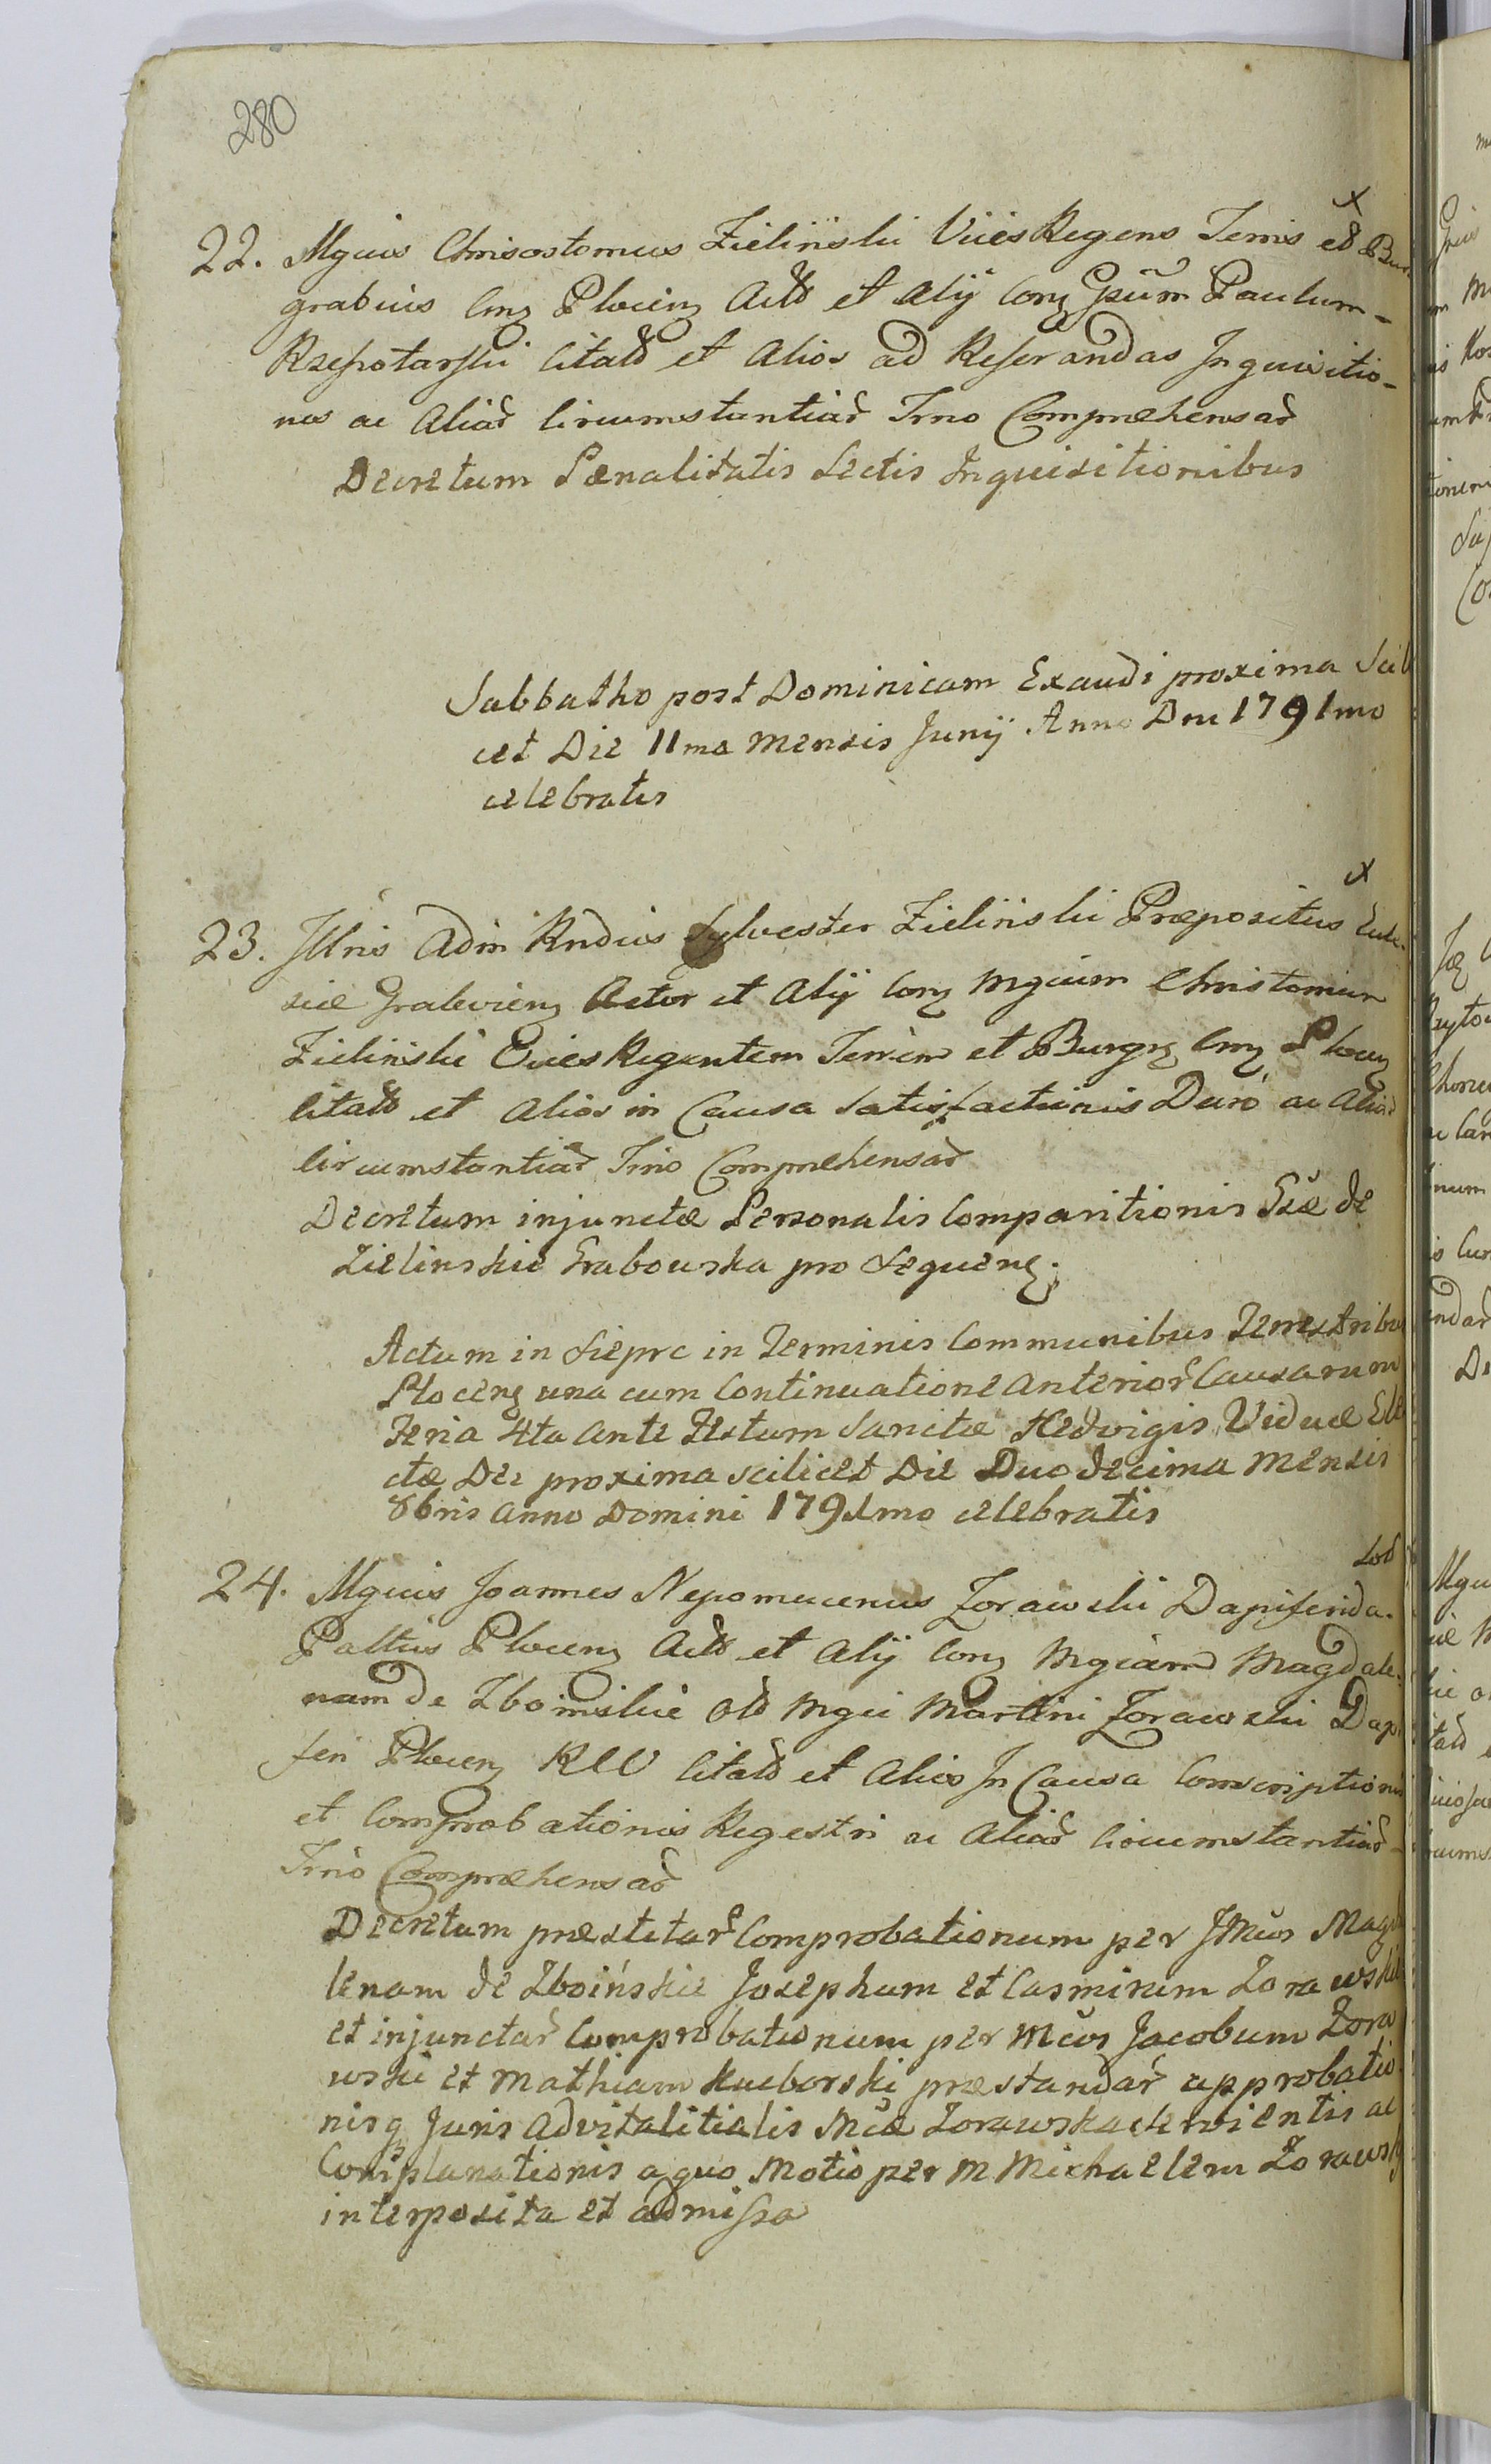 280
x
22. Mgcus Chrisostomus Zieliński Vices Regens Terris et Bur
grabius Cnz Plocenz Actō et Alij conz Gsum Paulum
Rzeszotarski Citatō et Alios ad Reserandas Inquisitio-
nes ac Aliar̃ Circumstantiar̃ Trno Compræhensar̃
Decretum Pœnalitatis Lectis Inquisitionibus
Sabbatho post Dominicam Exaudi proxima Scili
cet Die 11ma Mensis Junij Anno Dni 1791mo
celebratis
x
23. Illris Adm Rndus Sylvester Zieliński Præpositus Eccle-
siæ Gralevienz Actor et Alij conz Mgcum Christomum
Zieliński Vices Regentem Terrem et Burgz Cnz Plocenz
Citatō et Alios in Causa Satisfactionis Decrō ac Aliar̃
Circumstantiar̃ Trno Compræhensar̃
Decretum injunctæ Personalis Comparitionis Gsæ de
Zielinskie Grabowska pro sequenz.
Actum in Sieprc in Terminis Communibus Terrestribus
Plocenz una cum Continuatione Anterior̃ Causarum
Feria 4ta Ante Festum Sanctæ Hedvigis Viduæ Ele
ctæ Dei proxima scilicet Die Duodecima Mensis
8bris Anno Domini 1791mo celebratis
24. Mgcus Joannes Nepomucenus Zorawski Dapiferida
Paltus Plocenz Actō et Alij conz Mgcam Magdale-
nam de Zboinskie Olō Mgci Martini Zorawski Dapi
feri Plocenz RCV Citatō et Alios In Causa Conscriptionis
et Comprobationis Regestri ac Aliar̃ Circumstantiar̃
Trno Compræhensar̃
Decretum præstitar̃ Comprobationum per Mcos Magda
lenam de Zboińskie Josephum et Casimirum Zorawskie
et injunctar̃ Comprobationum per Mcos Jacobum Zora
wski et Mathiam Kucborski præstandar̃ approbatio
nisq Juris Advitalitialis Mcæ Zorawska servientis ac
Complanationis a quo Motio per M Michaelem Zorawski
interposita et admissa